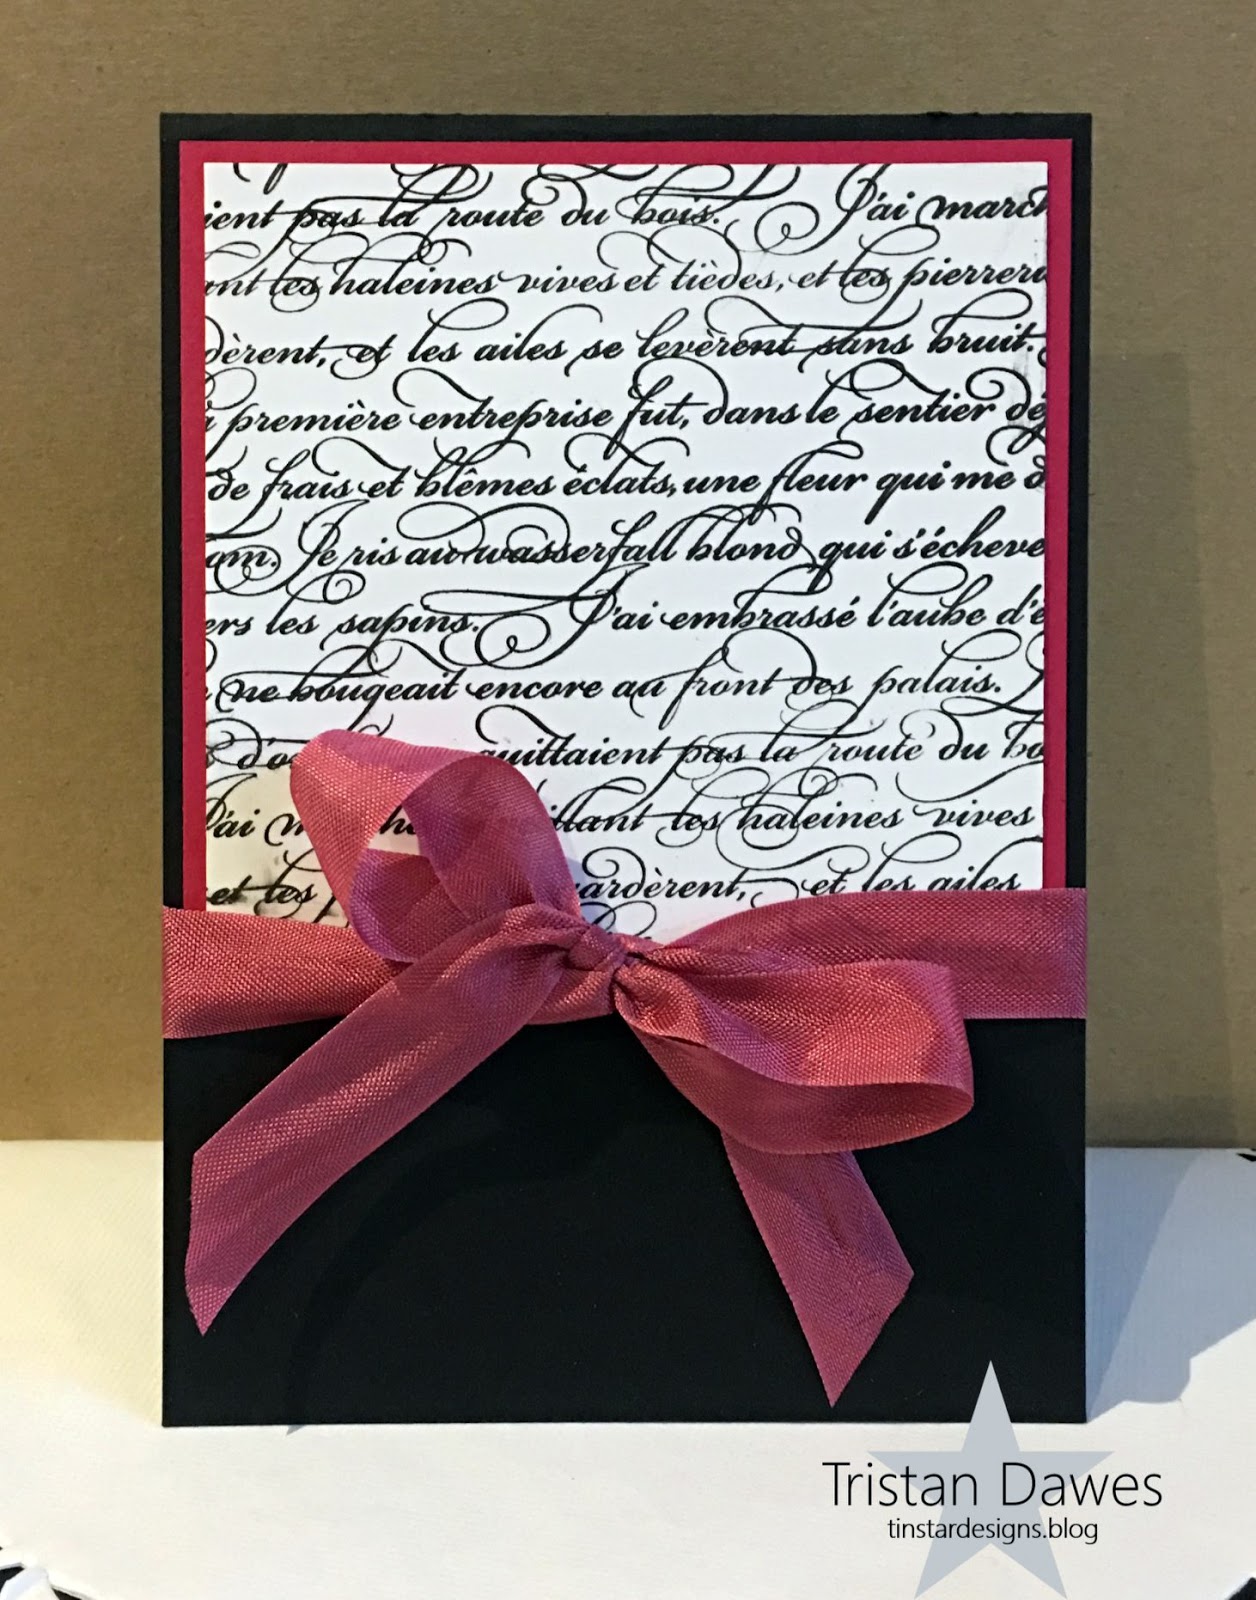 ient pas la route du bois. J'ai march
ant les haleines vives et tièdes, et les pierreri
dèrent, et les ailes se levèrent sans bruit.
première entreprise fut, dans le sentier déj
de frais et blêmes éclats, une fleur qui me d
om. Je ris au wasserfall blond qui s'écheve
ers les sapins. J'ai embrassé l'aube d'é
ne bougeait encore au front des palais.
d'o quittaient pas la route du bo
J'ai m illant les haleines vives
et les p ardèrent, et les ailes
Tristan Dawes
tinstardesigns.blog